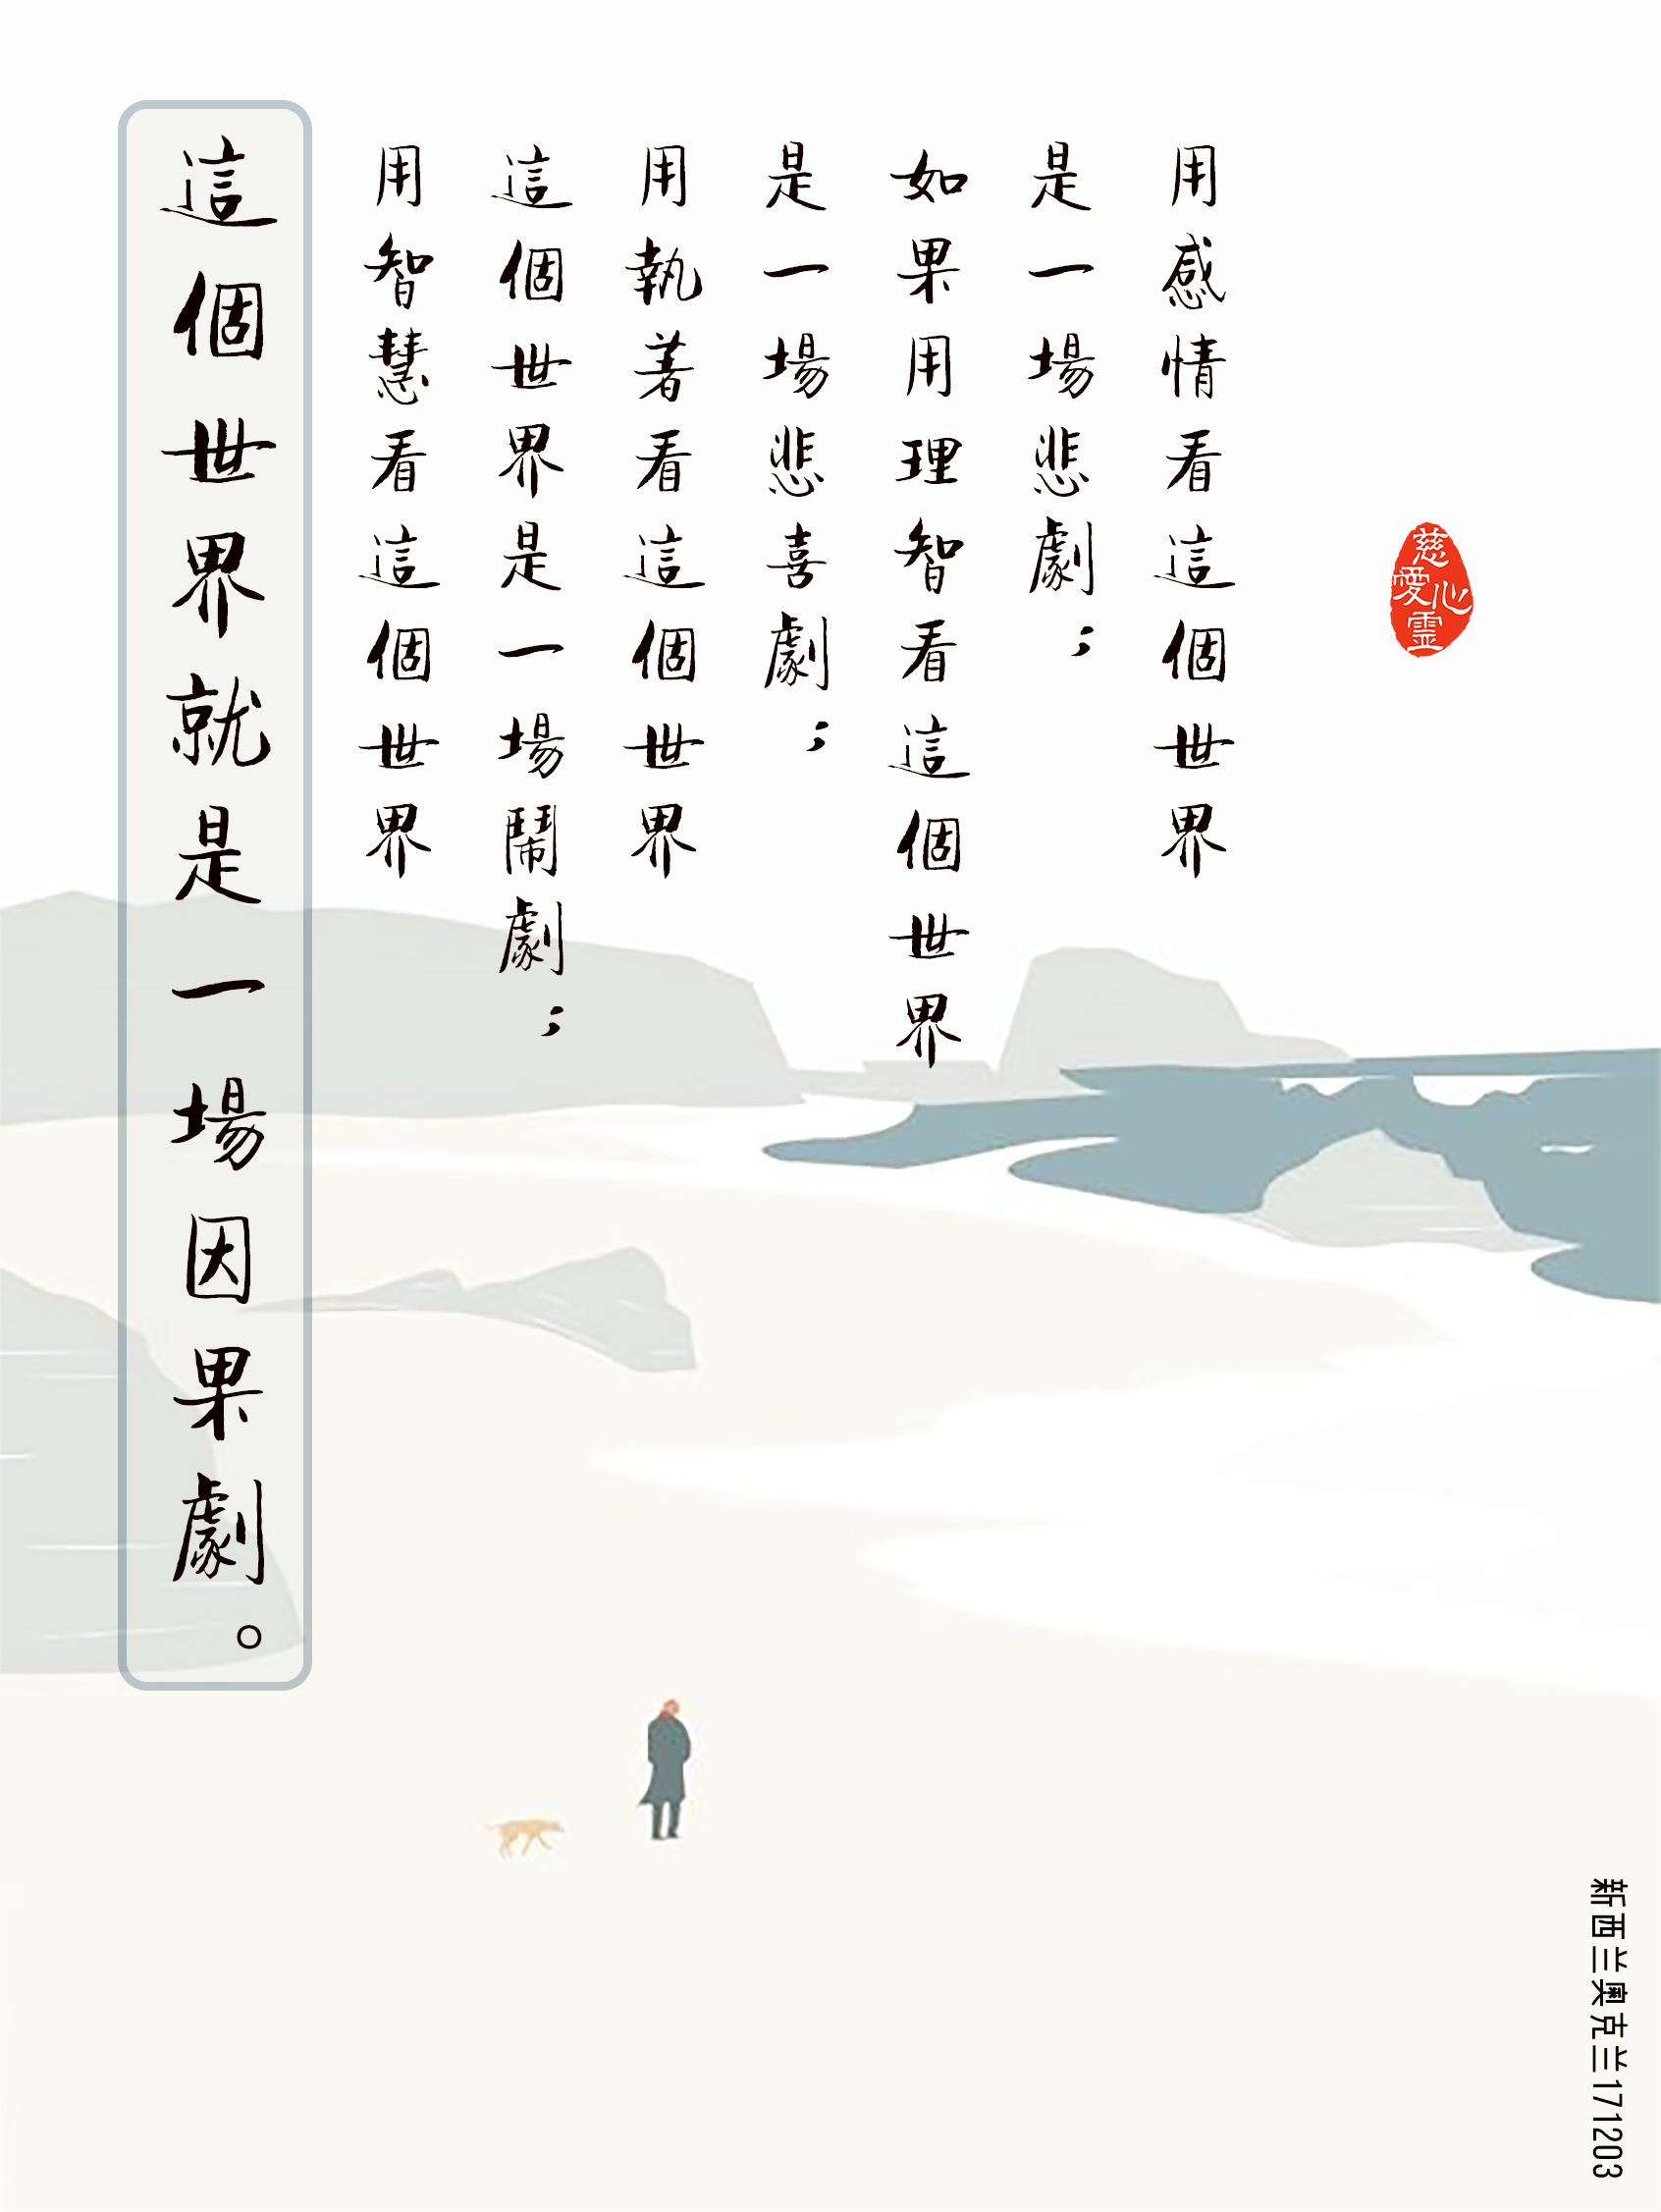 用感情看這個世界
是一場悲劇；
如果用理智看這個世界
是一場悲喜劇；
用執著看這個世界
這個世界是一場鬧劇；
用智慧看這個世界
這個世界就是一場因果劇。
慈愛心靈
新西兰奥克兰171203